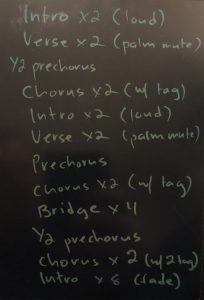 Intro x2 (loud)
Verse x2 (palm mute)
1/2 prechorus
Chorus x2 (w/ tag)
Intro x2 (loud)
Verse x2 (palm mute)
Prechorus
Chorus x2 (w/ tag)
Bridge x4
1/2 prechorus
Chorus x 2 (w/ 2 tag)
Intro x 8 (fade)